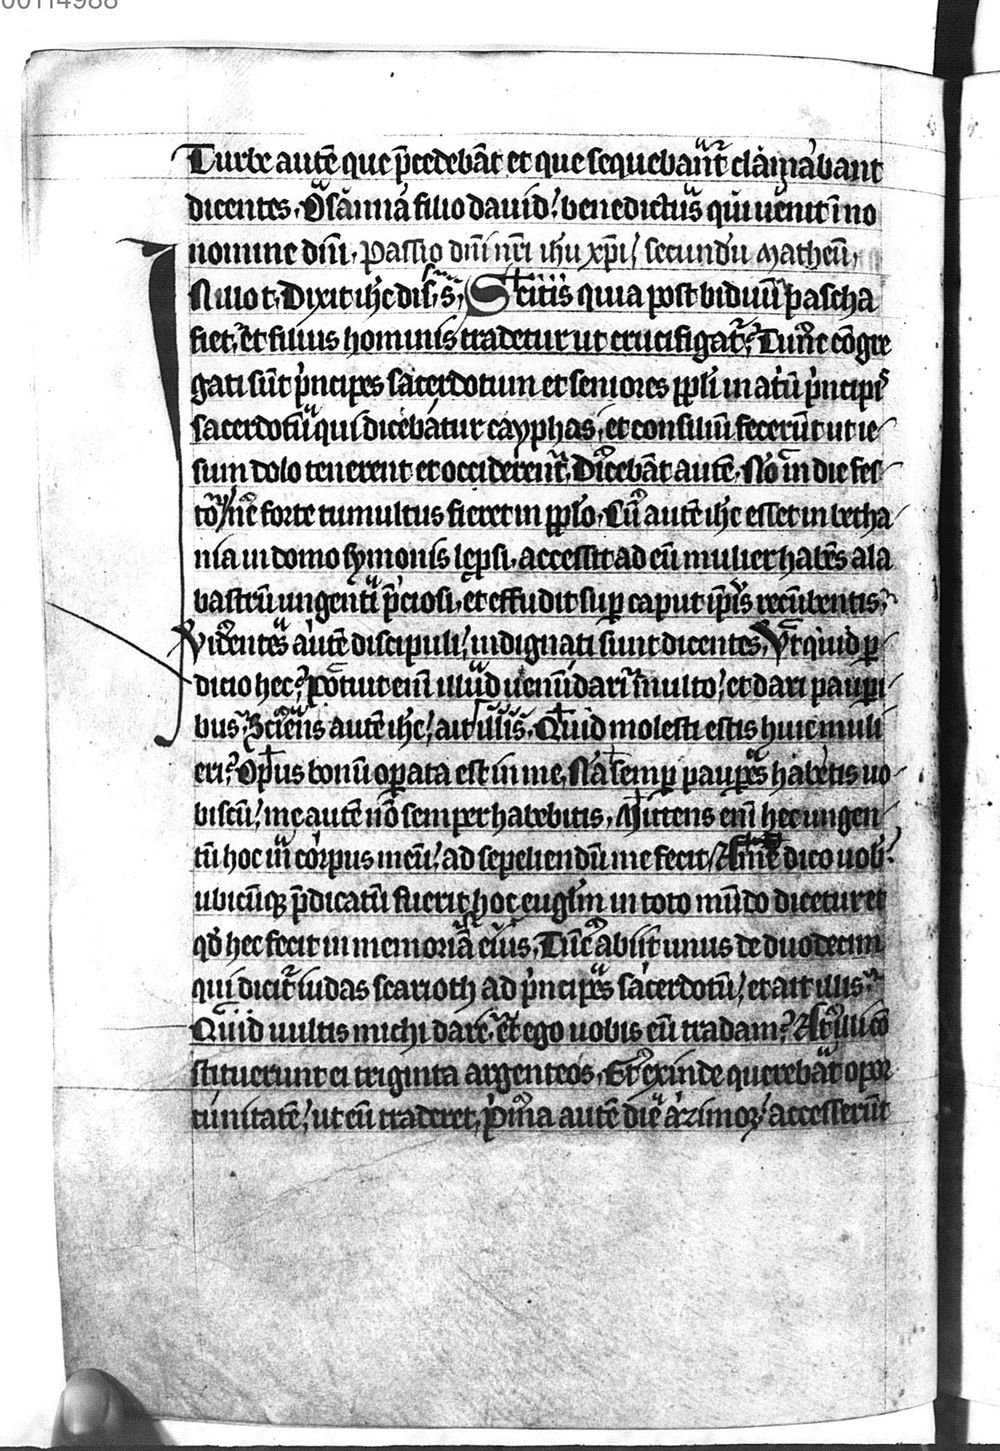 00114988
Turbe autē que p̄cedebāt et que sequebant̄ clamabant
dicentes. Osanna filio dauid! benedictus qui uenit ī no
nomine dn̄i. Passio dn̄i nr̄i ih̄u xp̄i secundū Matheū.
N illo t. Dixit ih̄c dis. s. Scitis quia post biduū pascha
fiet. et filius hominis tradetur ut crucifigat̄. Tunc cōgre
gati sūt p̄ncipes sacerdotum et seniores pp̄li in atriū p̄ncipis
sacerdotū qui dicebatur cayphas. et consiliū fecerūt ut ie
sum dolo tenerent et occiderent. Dicebāt autē. Nō in die fes
to. ne forte tumultus fieret in pp̄lo. Cū autē ih̄c esset in betha
nia in domo symonis lep̄si. accessit ad eū mulier habēs ala
bastrū ungenti p̄ciosi. et effudit sup̄ caput ip̄ius recūbentis.
Videntes autē discipuli! indignati sunt dicentes. Vt quid p̄
ditio hec? Potuit enī illud uenūdari multo! et dari paup̄i
bus. Sciens autē ih̄c! ait illis. Quid molesti estis huic muli
eri? Opus bonū op̄ata est in me. Nā semp̄ paup̄es habetis uo
biscū! me autē nō semper habebitis. Mittens enī hec ungen
tū hoc in corpus meū! ad sepeliendū me fecit. Amē dico uob̄.
ubicūq; p̄dicatū fuerit hoc euglm̄ in toto mūdo dicetur et
qd̄ hec fecit in memoriā eius. Tūc abiit unus de duodecim
qui dicit̄ iudas scarioth ad p̄ncipes sacerdotū! et ait illis.
Quid uultis michi dare. et ego uobis eū tradam? At illi cō
stituerunt ei triginta argenteos. Et exinde querebat opor
tunitatē! ut eū traderet. P̄ma autē die azimoꝝ accesserūt